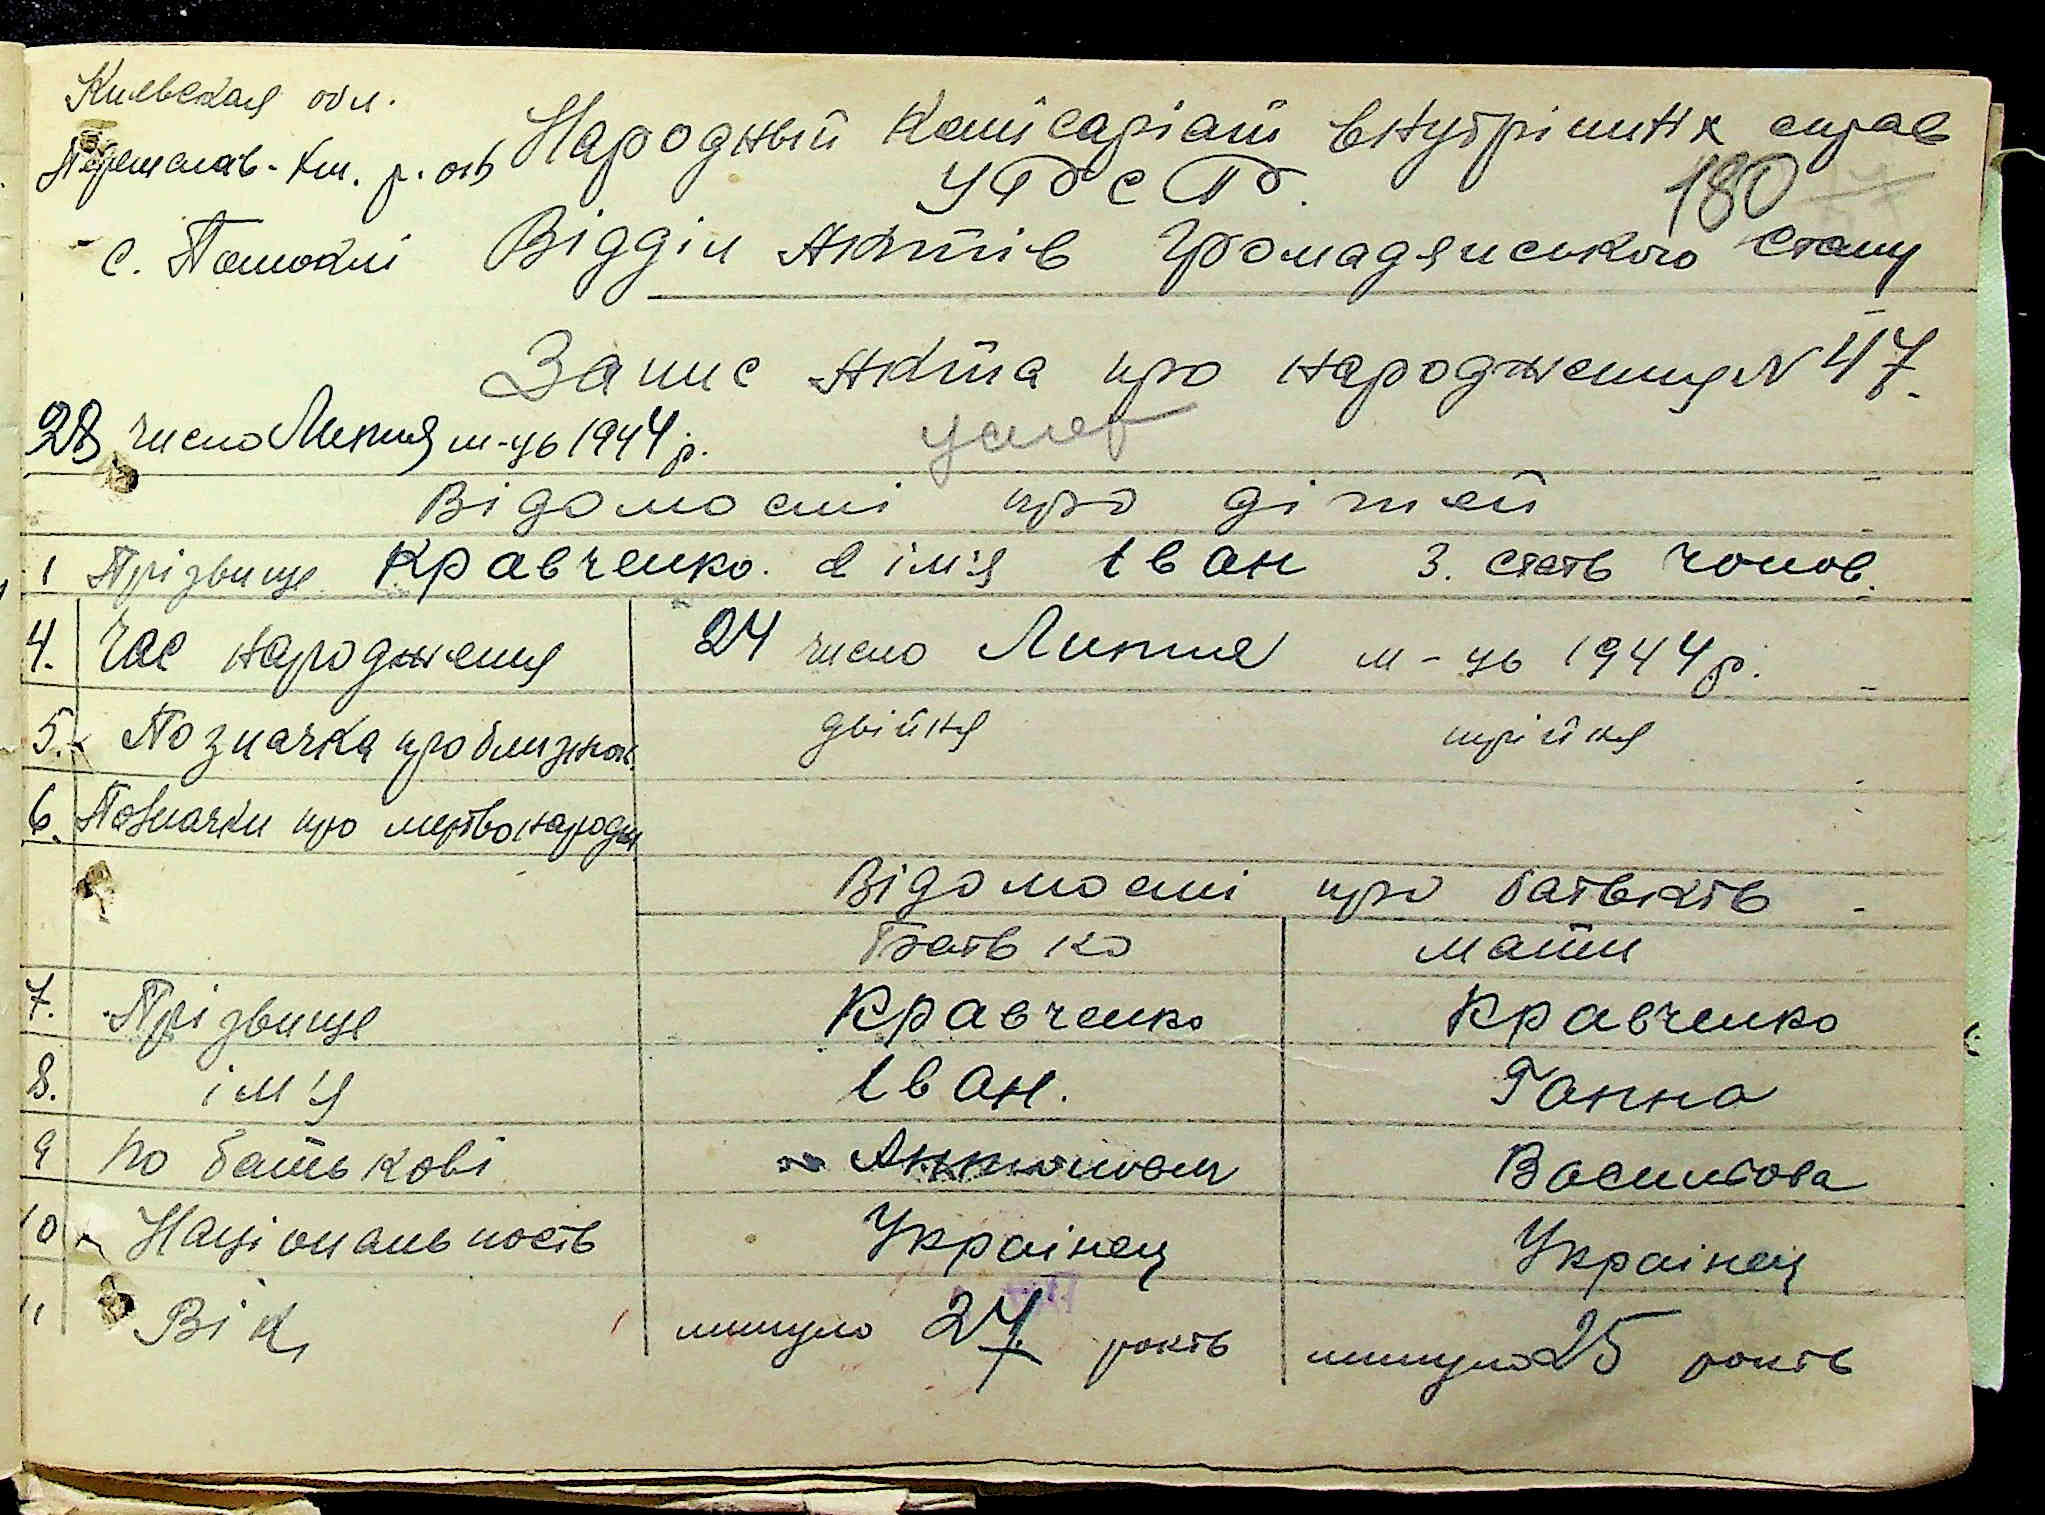 Киевская обл.
Народный Комісаріат внутрішних справ
Переяслав-Хм. р. отд
УРСР.
180
с. Помоклі Відділ Актів Громадянського стану
Запис Акта про народження N 47.
28 число Липня м-ць 1944 р. умер
Відомості про дітей
1 Прізвище Кравченко. 2 ім'я Іван 3. стать чолов.
4. Час народження 24 число Липня м-ць 1944 р.
5. Позначка про близнюк. двійня трійня
6. Позначки про мертвонародж
Відомості про батьків
Батько мати
7. Прізвище Кравченко Кравченко
8. ім'я Іван. Ганна
9 по батькові Василівва
10 Національность Українец Українец
11 Вік минуло 27 років минуло 25 років